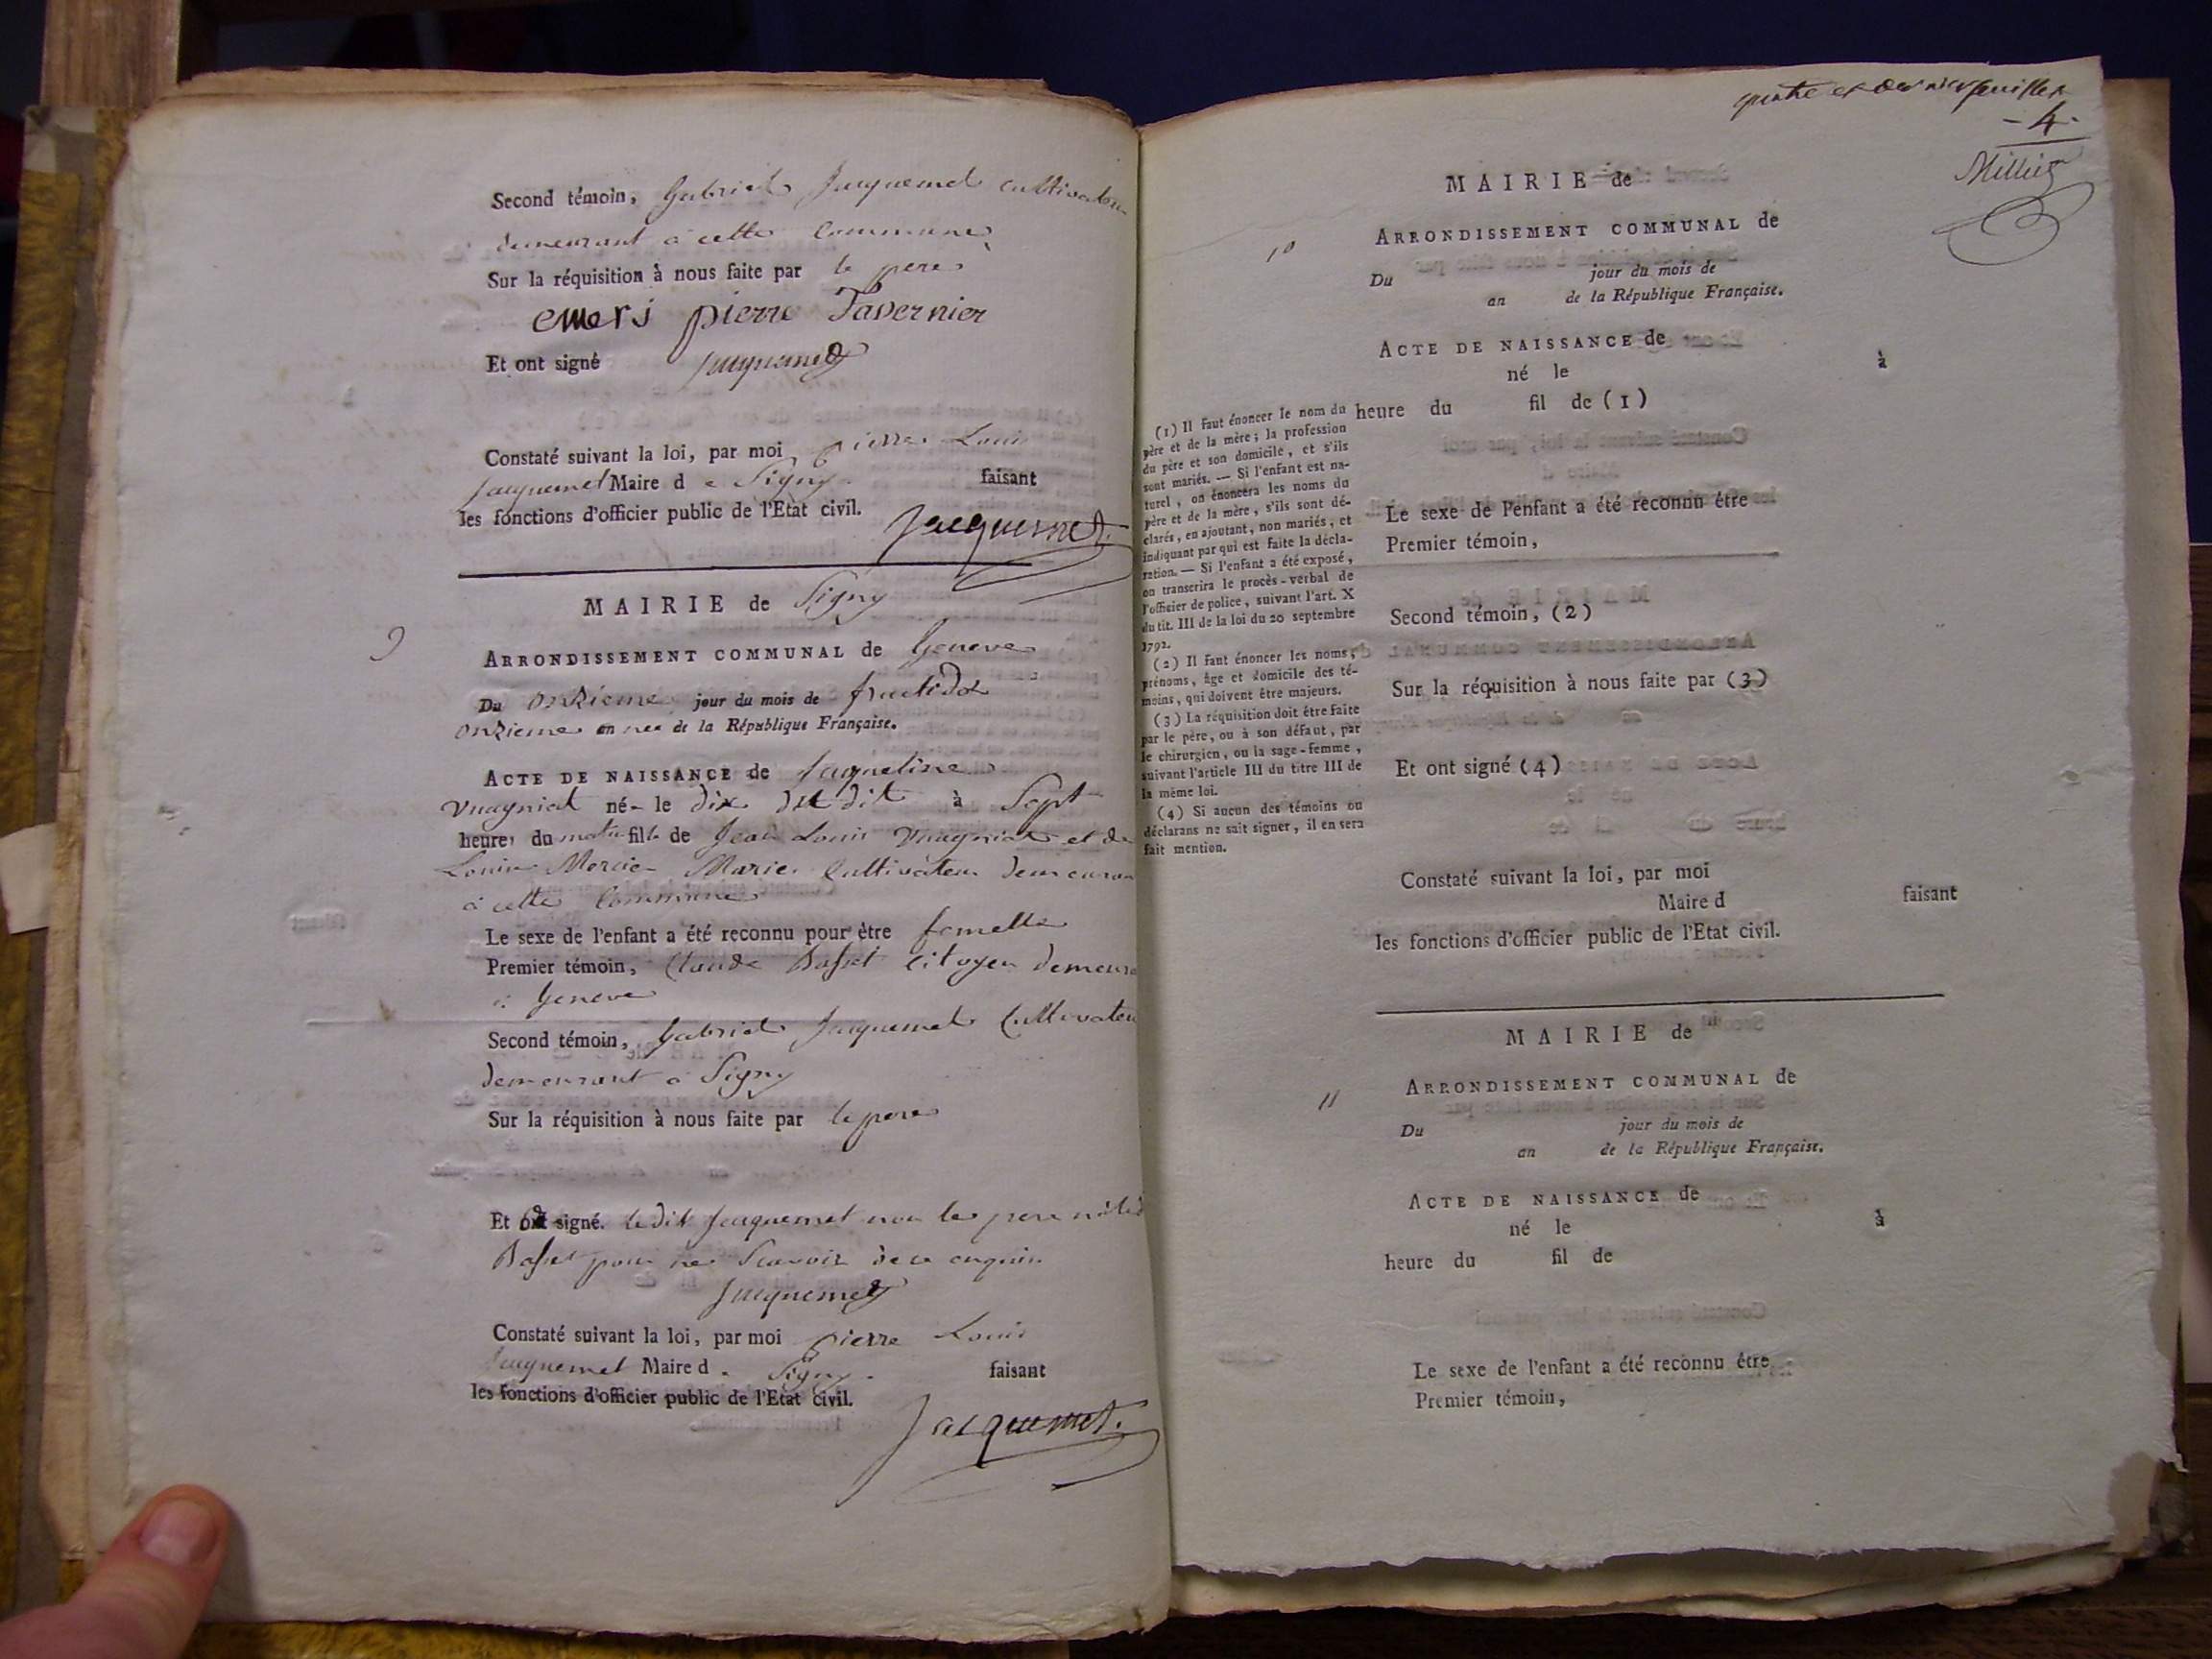 Second témoin, Gabriel Jacquemet cultivateur
demeurant à cette Commune
Sur la réquisition à nous faite par le pere
emeri pierre Tavernier
Et ont signé Jacquemet
Constaté suivant la loi, par moi pierre Louis
Jacquemet Maire d e Signy. faisant
les fonctions d'officier public de l'Etat civil.
Jacquemet.
MAIRIE de Signy
9
ARRONDISSEMENT COMMUNAL de Geneve
Du onzieme jour du mois de fructidor
onzieme an nee de la République Française.
ACTE DE NAISSANCE de Jaqueline
Vuagniat né e le dix du dit à Sept
heures du matin fille de Jean Louis Vuagniat et de
Louise Mercier Marie Cultivateur demeuran
à cette Commune
Le sexe de l'enfant a été reconnu pour être femelle
Premier témoin, Claude Basset Citoyen demeura
à Geneve
Second témoin, Gabriel Jacquemet Cultivateu
demeurant à Signy
Sur la réquisition à nous faite par le pere
Et signé. ledit Jacquemet non le pere ni led
Basset pour ne Scavoir de ce enquis
Jacquemet
Constaté suivant la loi, par moi pierre Louis
Jacquemet Maire d e Signy. faisant
les fonctions d'officier public de l'Etat civil.
Jacquemet.
quatre et dernier feuillet
- 4 -
Milliet
MAIRIE de
10
ARRONDISSEMENT COMMUNAL de
Du jour du mois de
an de la République Française.
ACTE DE NAISSANCE de
né le à
heure du fil de (1)
Le sexe de l'enfant a été reconnu être
Premier témoin,
Second témoin, (2)
Sur la réquisition à nous faite par (3)
Et ont signé (4)
Constaté suivant la loi, par moi
Maire d faisant
les fonctions d'officier public de l'Etat civil.
(1) Il faut énoncer le nom du
père et de la mère; la profession
du père et son domicile, et s'ils
sont mariés. — Si l'enfant est na-
turel, on énoncera les noms du
père et de la mère, s'ils sont dé-
clarés, en ajoutant, non mariés, et
indiquant par qui est faite la décla-
ration. — Si l'enfant a été exposé,
on transcrira le procès-verbal de
l'officier de police, suivant l'art. X
du tit. III de la loi du 20 septembre
1792.
(2) Il faut énoncer les noms,
prénoms, âge et domicile des té-
moins, qui doivent être majeurs.
(3) La réquisition doit être faite
par le père, ou à son défaut, par
le chirurgien, ou la sage-femme,
suivant l'article III du titre III de
la même loi.
(4) Si aucun des témoins ou
déclarans ne sait signer, il en sera
fait mention.
MAIRIE de
11
ARRONDISSEMENT COMMUNAL de
Du jour du mois de
an de la République Française.
ACTE DE NAISSANCE de
né le à
heure du fil de
Le sexe de l'enfant a été reconnu être
Premier témoin,